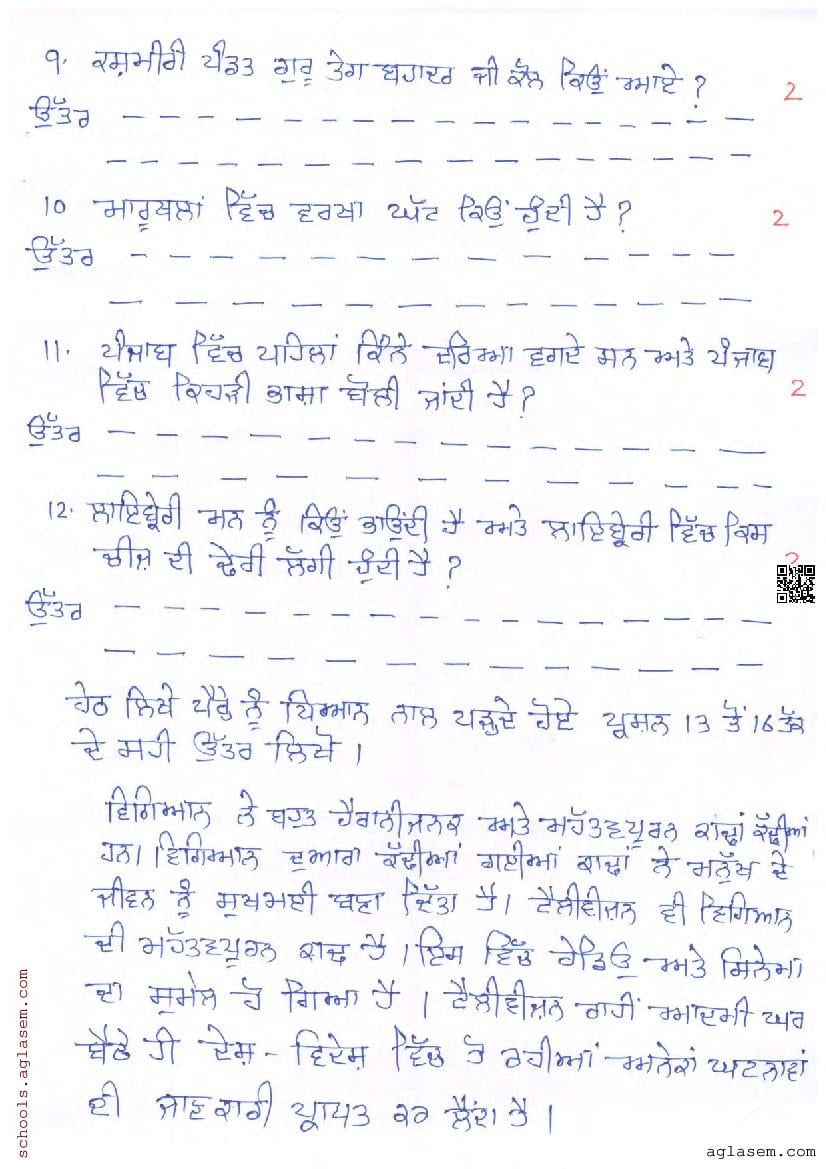 9. ਕਸ਼ਮੀਰੀ ਪੰਡਤ ਗੁਰੂ ਤੇਗ ਬਹਾਦਰ ਜੀ ਕੋਲ ਕਿਉਂ ਆਏ ? 2
ਉੱਤਰ
10 ਮਾਰੂਥਲਾਂ ਵਿੱਚ ਵਰਖਾ ਘੱਟ ਕਿਉਂ ਹੁੰਦੀ ਹੈ ? 2
ਉੱਤਰ
11. ਪੰਜਾਬ ਵਿੱਚ ਪਹਿਲਾਂ ਕਿੰਨੇ ਦਰਿਆ ਵਗਦੇ ਸਨ ਅਤੇ ਪੰਜਾਬ
ਵਿੱਚ ਕਿਹੜੀ ਭਾਸ਼ਾ ਬੋਲੀ ਜਾਂਦੀ ਹੈ ? 2
ਉੱਤਰ
12. ਲਾਇਬ੍ਰੇਰੀ ਮਨ ਨੂੰ ਕਿਉਂ ਭਾਉਂਦੀ ਹੈ ਅਤੇ ਲਾਇਬ੍ਰੇਰੀ ਵਿੱਚ ਕਿਸ
ਚੀਜ਼ ਦੀ ਢੇਰੀ ਲੱਗੀ ਹੁੰਦੀ ਹੈ ? 2
ਉੱਤਰ
ਹੇਠ ਲਿਖੇ ਪੈਰੇ ਨੂੰ ਧਿਆਨ ਨਾਲ ਪੜ੍ਹਦੇ ਹੋਏ ਪ੍ਰਸ਼ਨ 13 ਤੋਂ 16 ਤੱਕ
ਦੇ ਸਹੀ ਉੱਤਰ ਲਿਖੋ ।
ਵਿਗਿਆਨ ਨੇ ਬਹੁਤ ਹੈਰਾਨੀਜਨਕ ਅਤੇ ਮਹੱਤਵਪੂਰਨ ਕਾਢਾਂ ਕੱਢੀਆਂ
ਹਨ। ਵਿਗਿਆਨ ਦੁਆਰਾ ਕੱਢੀਆਂ ਗਈਆਂ ਕਾਢਾਂ ਨੇ ਮਨੁੱਖ ਦੇ
ਜੀਵਨ ਨੂੰ ਸੁਖਮਈ ਬਣਾ ਦਿੱਤਾ ਹੈ। ਟੈਲੀਵੀਜ਼ਨ ਵੀ ਵਿਗਿਆਨ
ਦੀ ਮਹੱਤਵਪੂਰਨ ਕਾਢ ਹੈ । ਇਸ ਵਿੱਚ ਰੇਡਿਓ ਅਤੇ ਸਿਨੇਮਾ
ਦਾ ਸੁਮੇਲ ਹੋ ਗਿਆ ਹੈ । ਟੈਲੀਵੀਜ਼ਨ ਰਾਹੀਂ ਆਦਮੀ ਘਰ
ਬੈਠੇ ਹੀ ਦੇਸ਼ - ਵਿਦੇਸ਼ ਵਿੱਚ ਹੋ ਰਹੀਆਂ ਅਨੇਕਾਂ ਘਟਨਾਵਾਂ
ਦੀ ਜਾਣਕਾਰੀ ਪ੍ਰਾਪਤ ਕਰ ਲੈਂਦਾ ਹੈ ।
schools.aglasem.com
aglasem.com